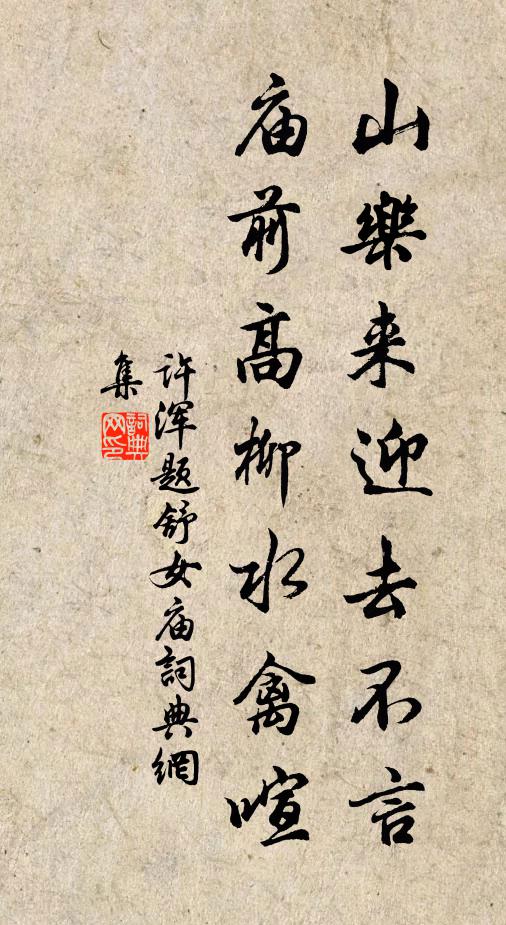 山樂来迎去不言
庙前高柳水禽喧
许浑题舒女庙詞典網
集
詞典
网印